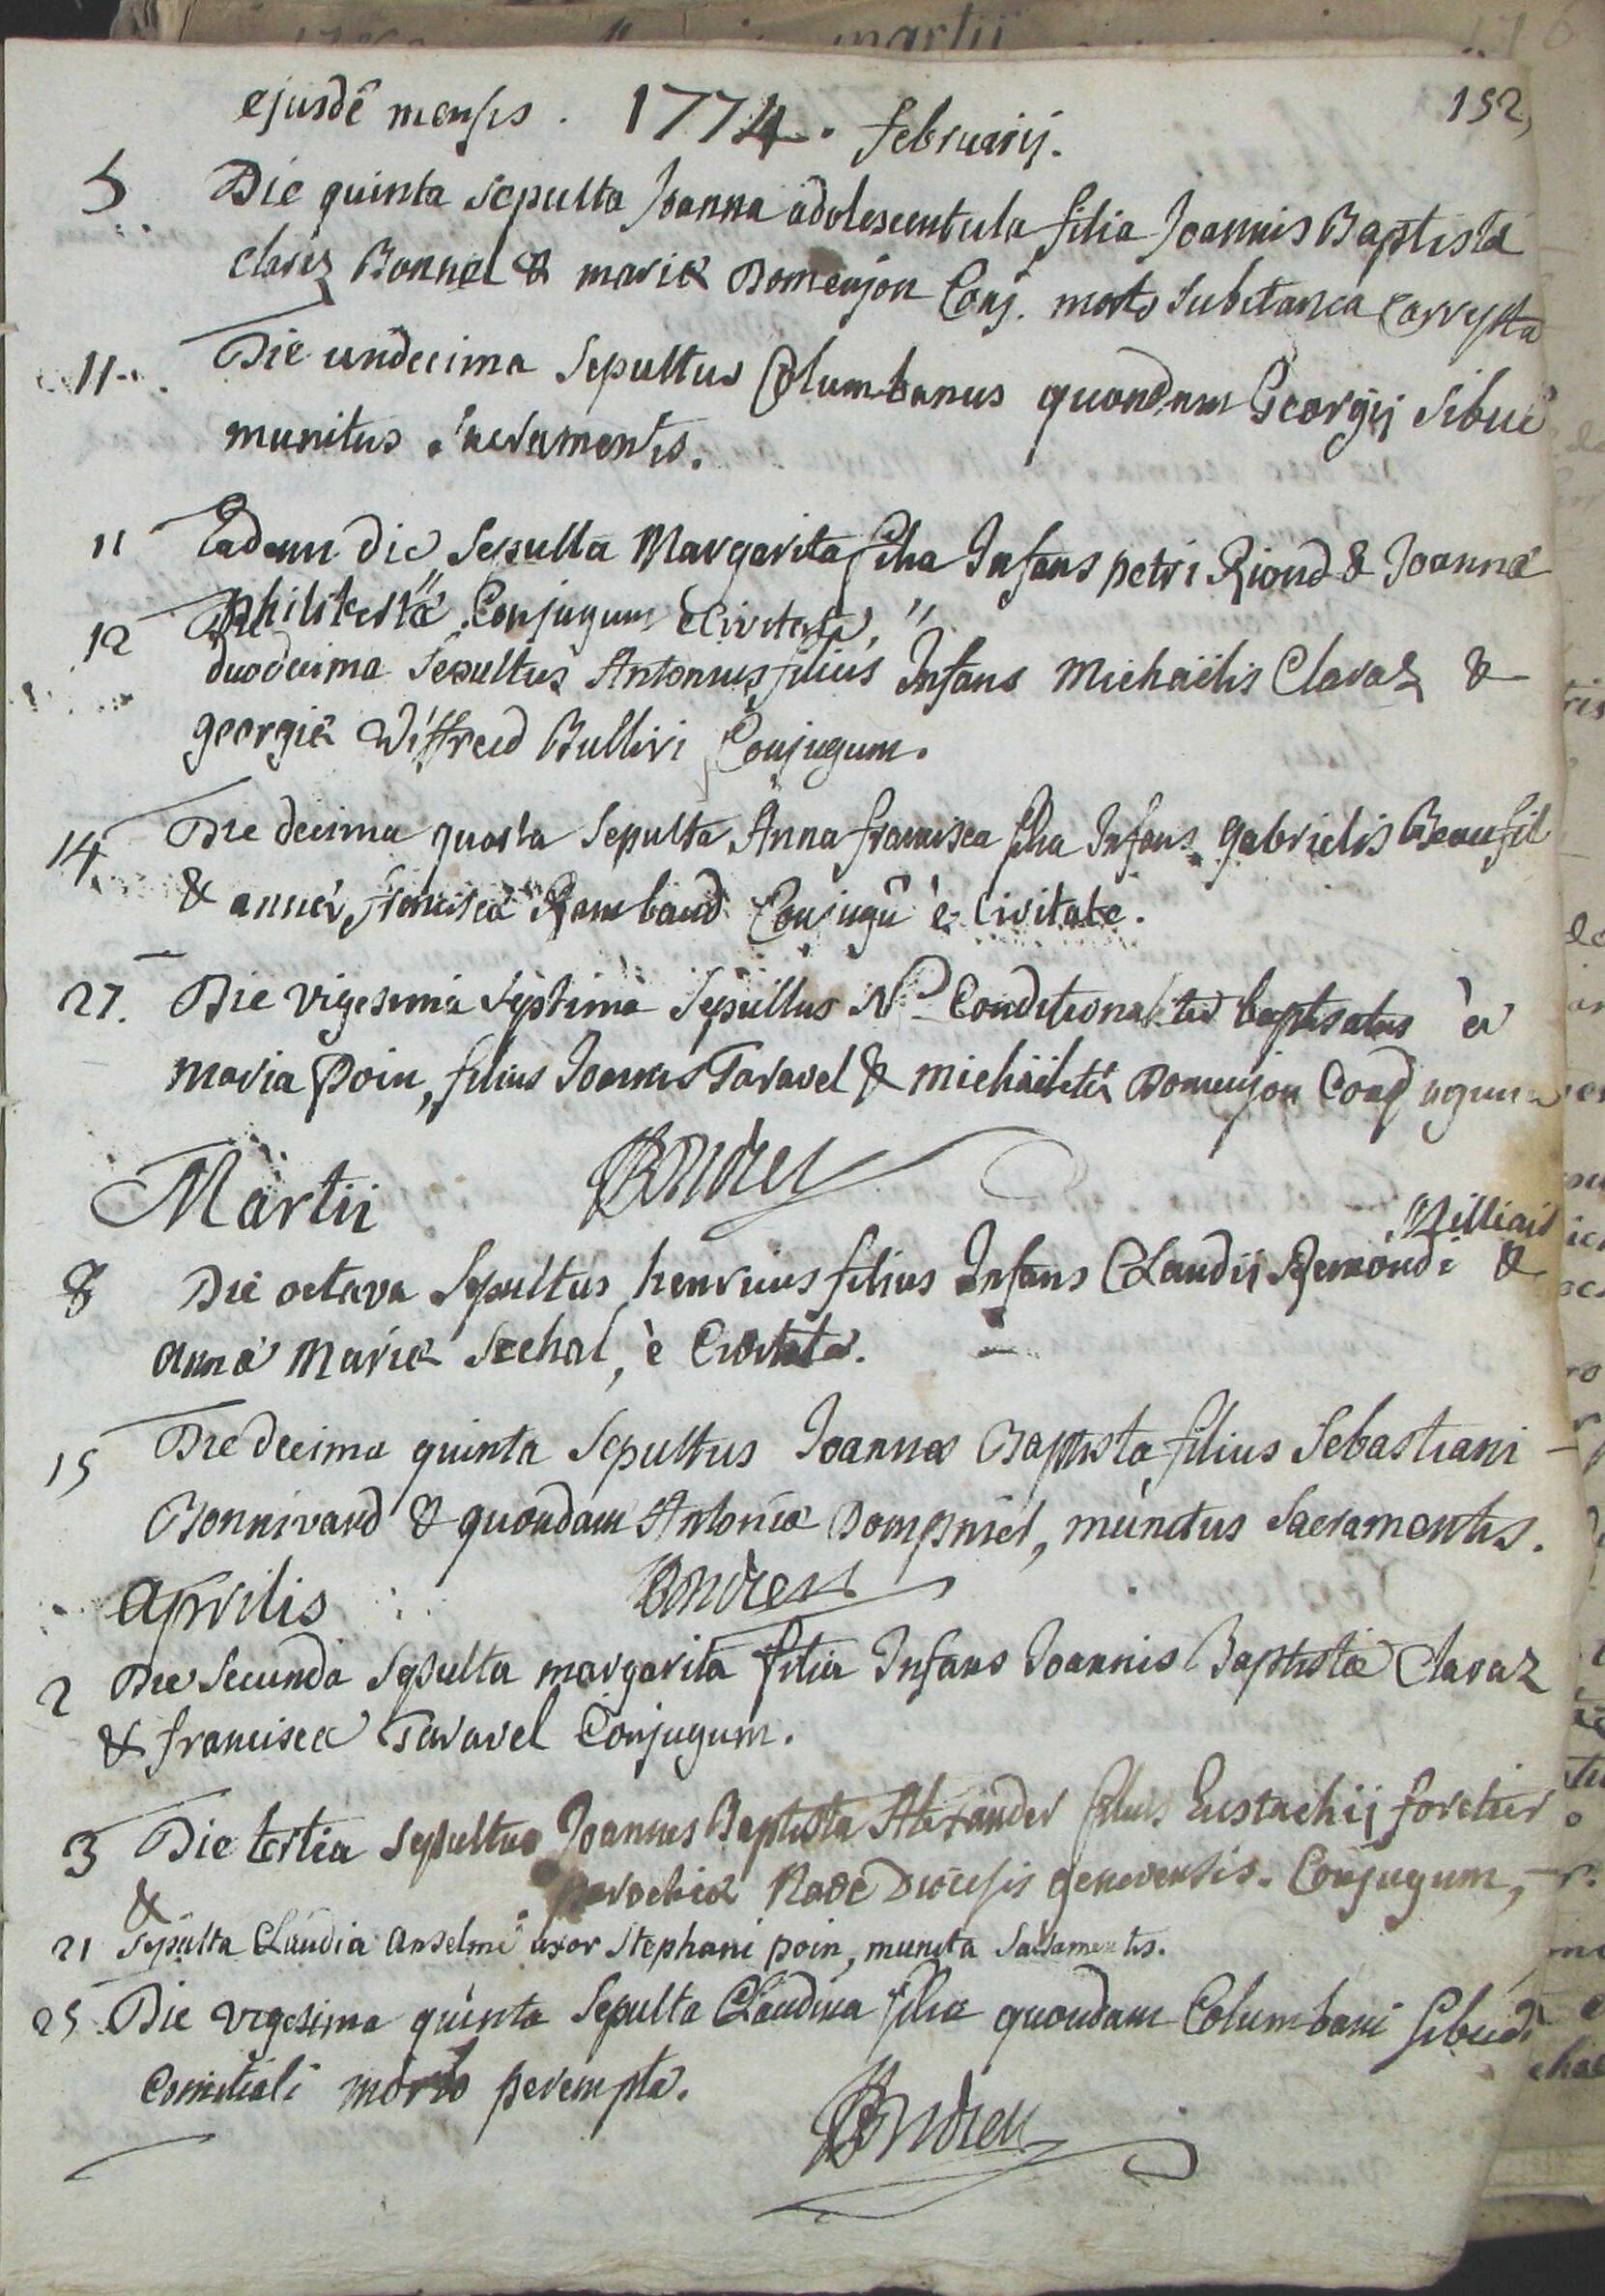 ejusdē mensis . 1774. februarij. 152
5. Die quinta sepulta Joanna adolescentula filia Joannis Baptistæ
Claraz Bonnel & mariæ Domenjon Conj. morte subitanea correpta
11. Die undecima Sepultus Columbanus quondam Georgij Sibué
munitus sacramentis.
11 Eadem die sepulta Margarita filia Infans petri Riond & Joannæ
philiberta Conjugum è Civitate,
12 Die duodecima Sepultus Antonius filius Infans Michaëlis Claraz &
georgiæ Wiffred Bulliri Conjugum.
14 Die decima quarta Sepulta Anna francisca filia Infans gabrielis Beaufil
& annæ franciscæ Rambaud Conjugū è Civitate.
27. Die vigesima septima Sepultus N. Conditionaliter baptisatus à
maria Poin, filius Joannis Taravel & michaëletæ Domenjon Conjugum
Martii Bondrey
Milliais
8 Die octava Sepultus henricus filius Infans Claudij Remondi &
annæ Mariæ Sechal, è Civitate.
15 Die decima quinta Sepultus Joannes Baptista filius Sebastiani
Bonnivard & quondam Antoniæ Dompniet, munitus Sacramentis.
Aprilis Bondrey
2 Die Secunda Sepulta margarita filia Infans Joannis Baptistæ Claraz
& franciscæ Taravel Conjugum.
3 Die tertia sepultus Joannes Baptista Alexander filius Eustachij foretier
& parochiæ Diœcesis genevensis. Conjugum,
21 sepulta Claudia Anselme uxor Stephani poin, munita Sacramentis.
25 Die vigesima quinta Sepulta Claudina filia quondam Columbani Sibué
Comitiali morbo perempta.
Bondrey